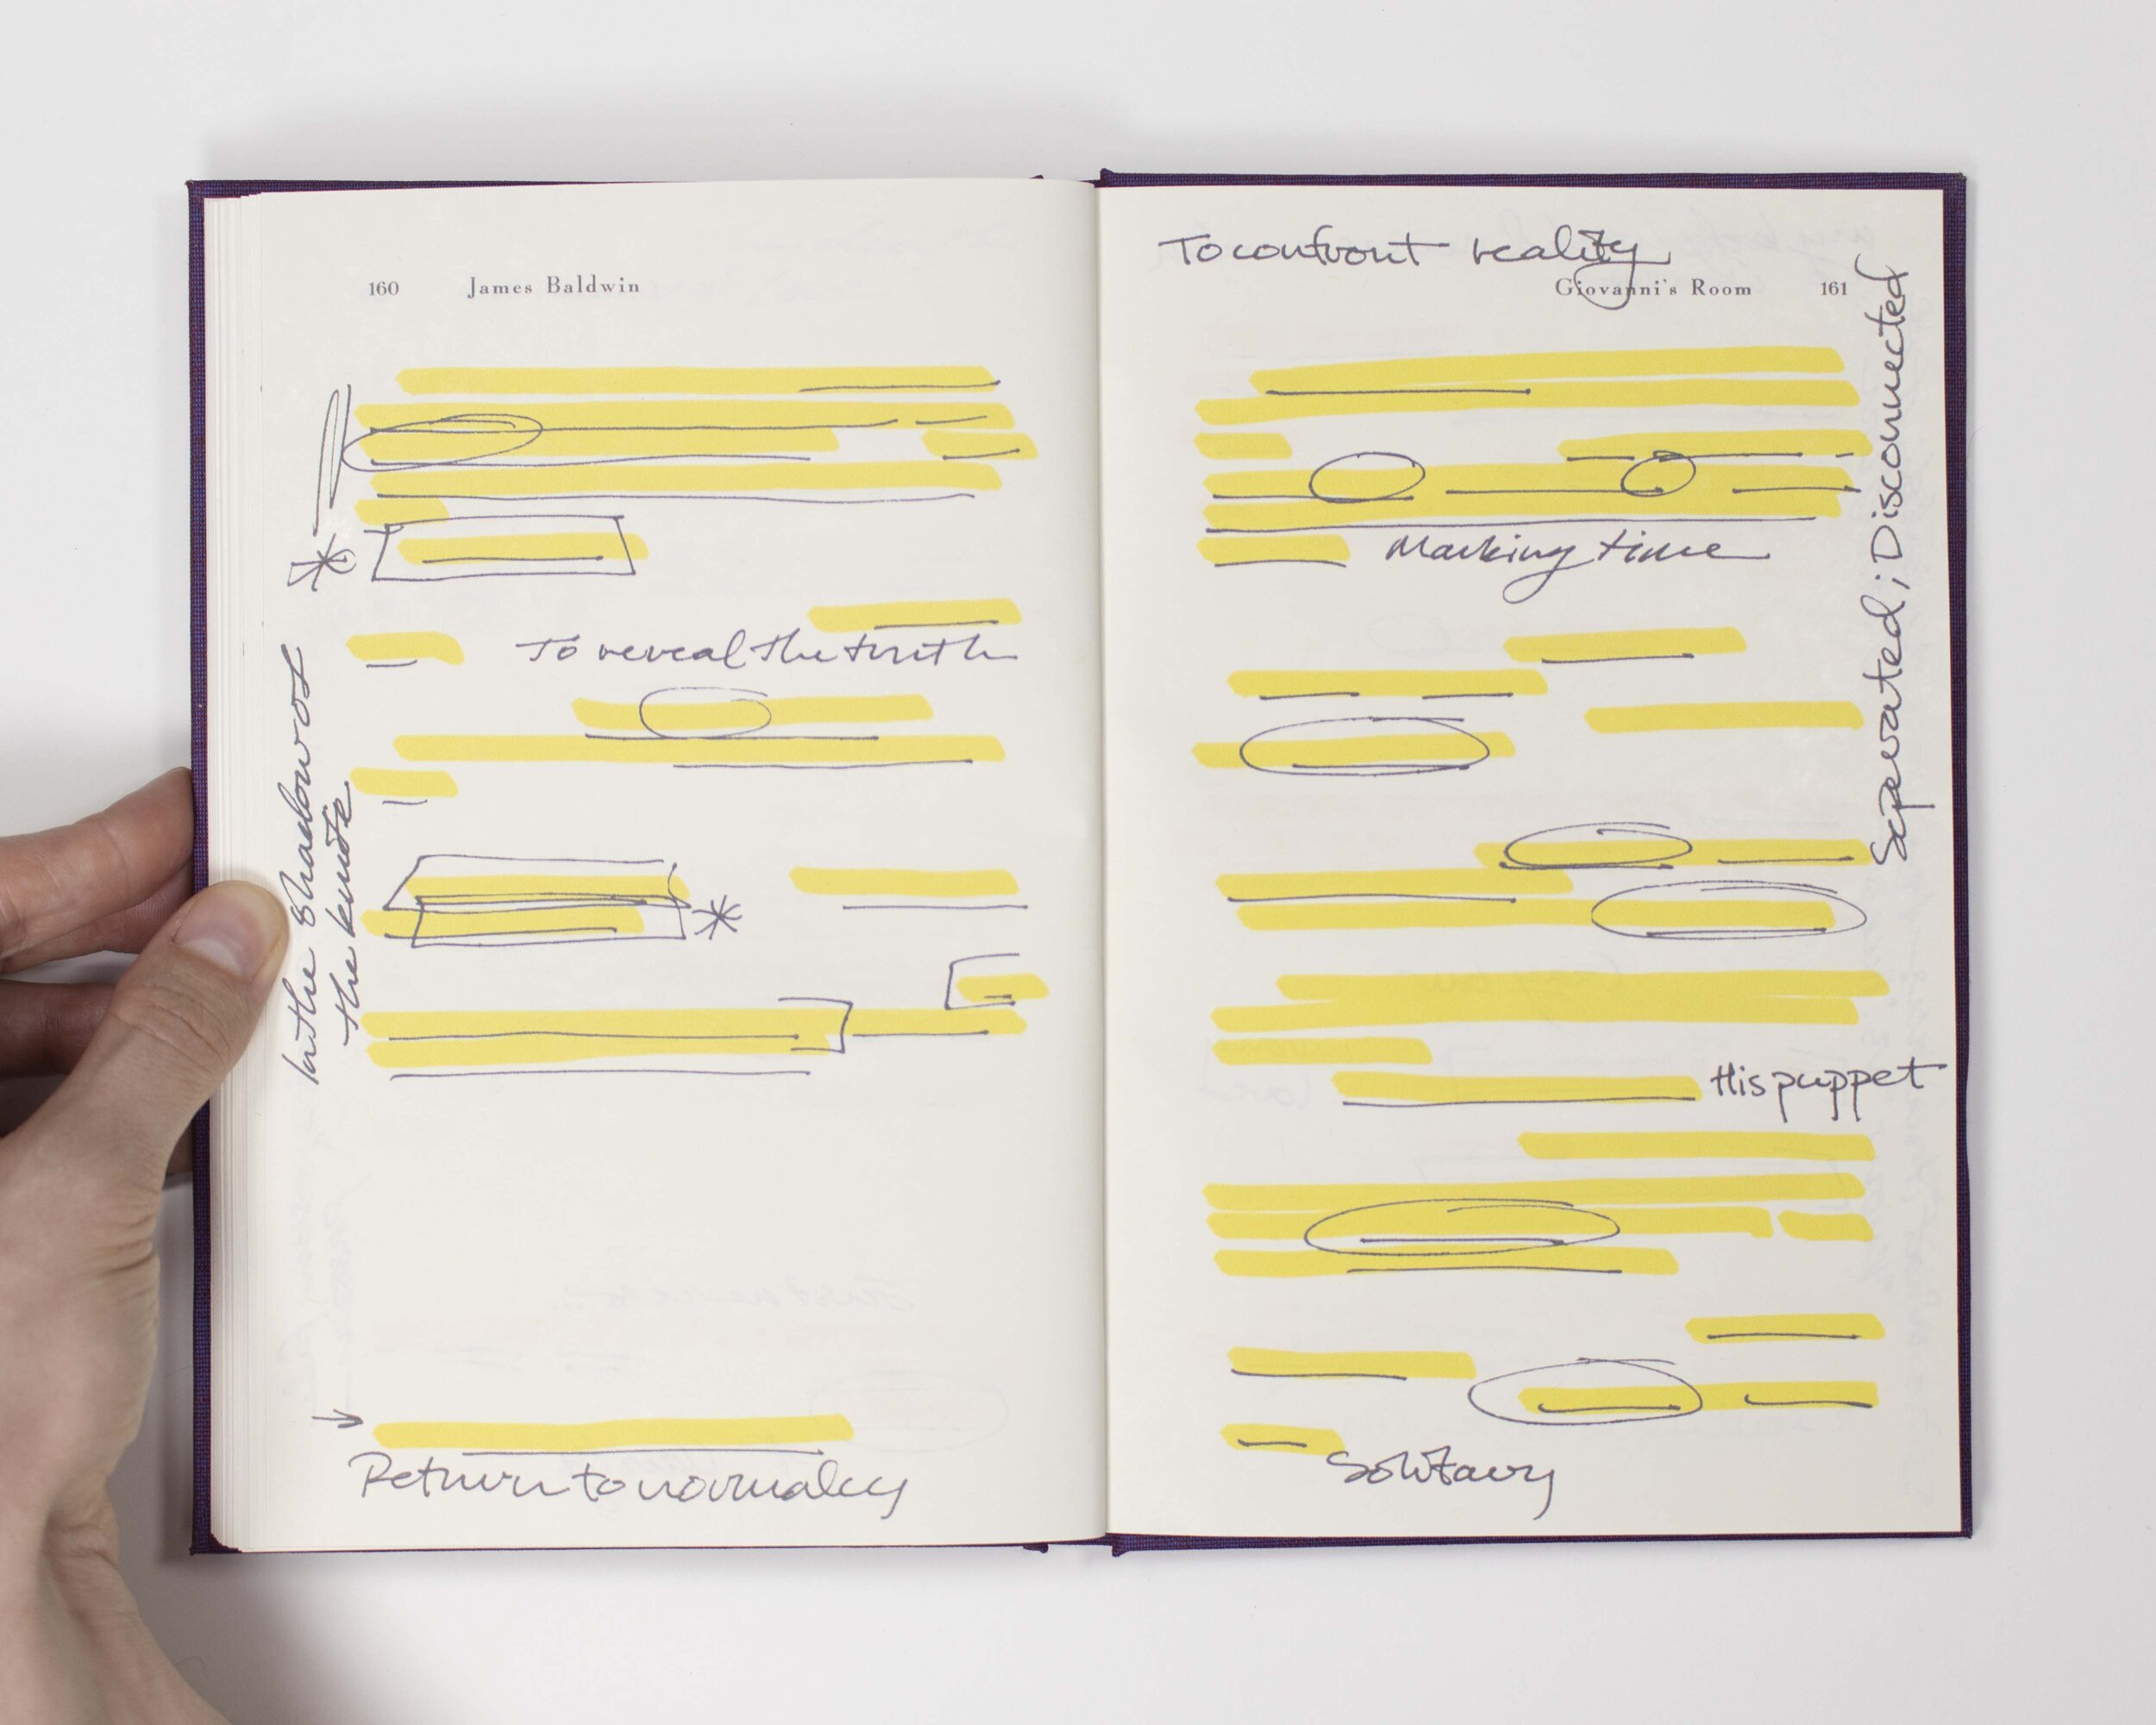 160 James Baldwin
To reveal the truth
In the shadow of
the knife
Return to normalcy
To confront reality
Giovanni's Room 161
Separated; Disconnected
Marking time
His puppet
Solitary